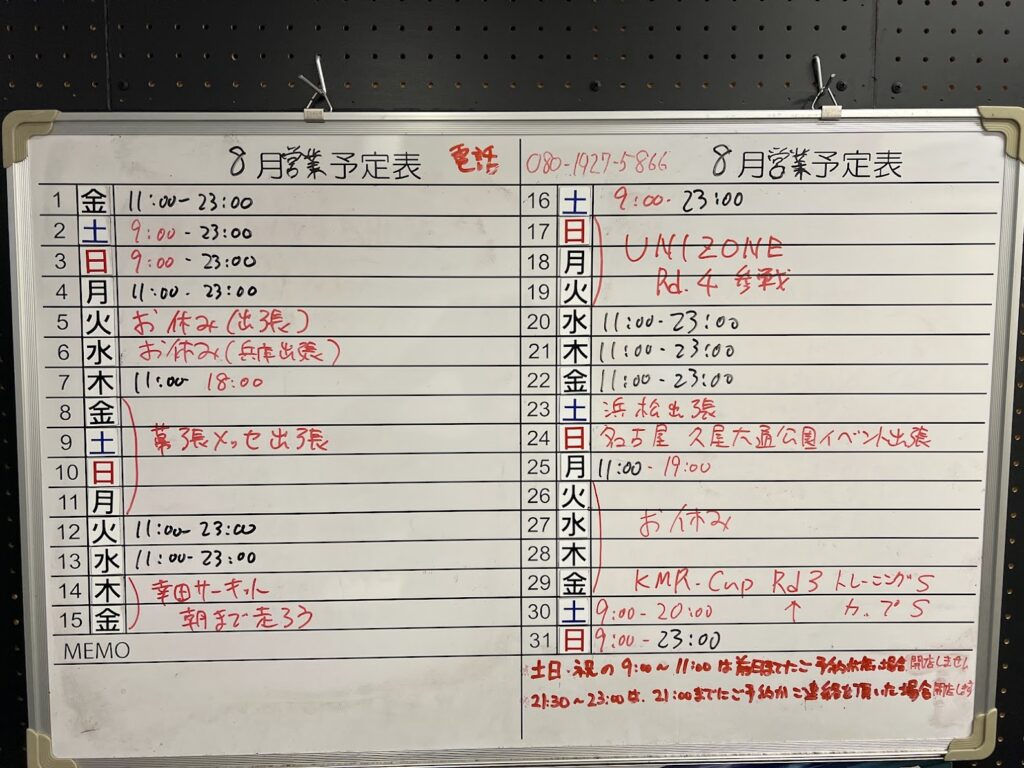 8月営業予定表 電話 080-1927-5866
1 金 11:00-23:00
2 土 9:00-23:00
3 日 9:00-23:00
4 月 11:00-23:00
5 火 お休み(出張)
6 水 お休み(兵庫出張)
7 木 11:00-18:00
8 金
9 土 幕張メッセ出張
10 日
11 月
12 火 11:00-23:00
13 水 11:00-23:00
14 木 幸田サーキット
15 金 朝まで走ろう
MEMO
8月営業予定表
16 土 9:00-23:00
17 日 UNIZONE
18 月
Rd.4 参戦
19 火
20 水 11:00-23:00
21 木 11:00-23:00
22 金 11:00-23:00
23 土 浜松出張
24 日 名古屋 久屋大通公園イベント出張
25 月 11:00-19:00
26 火
27 水 お休み
28 木
29 金 KMR-Cup Rd3 トレーニングS
30 土 9:00-20:00 ↑ カップS
31 日 9:00-23:00
土日・祝の9:00~11:00は前日までにご予約無い場合開店しません
21:30~23:00は、21:00までにご予約かご連絡を頂いた場合開店します